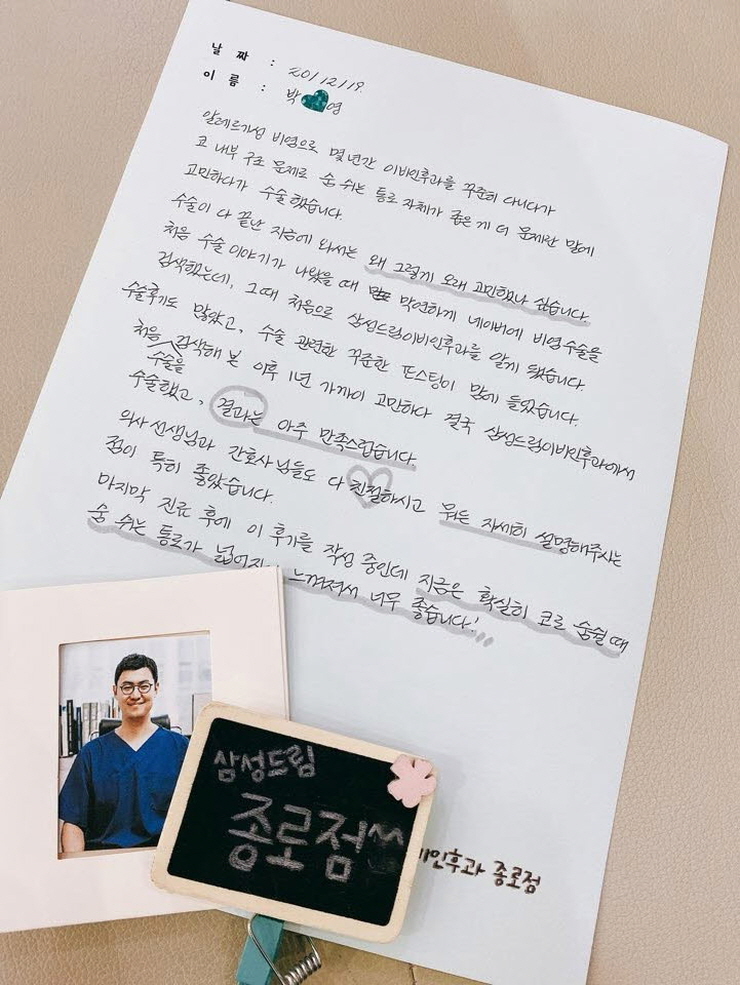 날 짜 : 201219.
이 름 : 박 영
알레르기성 비염으로 몇 년간 이비인후과를 꾸준히 다니다가
코 내부 구조 문제로 숨 쉬는 통로 자체가 좁은 게 더 문제란 말에
고민하다가 수술했습니다.
수술이 다 끝난 지금에 와서는 왜 그렇게 오래 고민했나 싶습니다.
처음 수술 이야기가 나왔을 때 막연하게 네이버에 비염수술을
검색했는데, 그때 처음으로 삼성드림이비인후과를 알게 됐습니다.
수술후기도 많았고, 수술 관련한 꾸준한 포스팅이 맘에 들었습니다.
처음 수술을 검색해 본 이후 1년 가까이 고민하다 결국 삼성드림이비인후과에서
수술했고, 결과는 아주 만족스럽습니다.
의사선생님과 간호사님들도 다 친절하시고 뭐든 자세히 설명해주시는
점이 특히 좋았습니다.
마지막 진료 후에 이 후기를 작성 중인데 지금은 확실히 코로 숨쉴 때
숨 쉬는 통로가 넓어진 느껴져서 너무 좋습니다!
삼성드림
종로점
비인후과 종로점